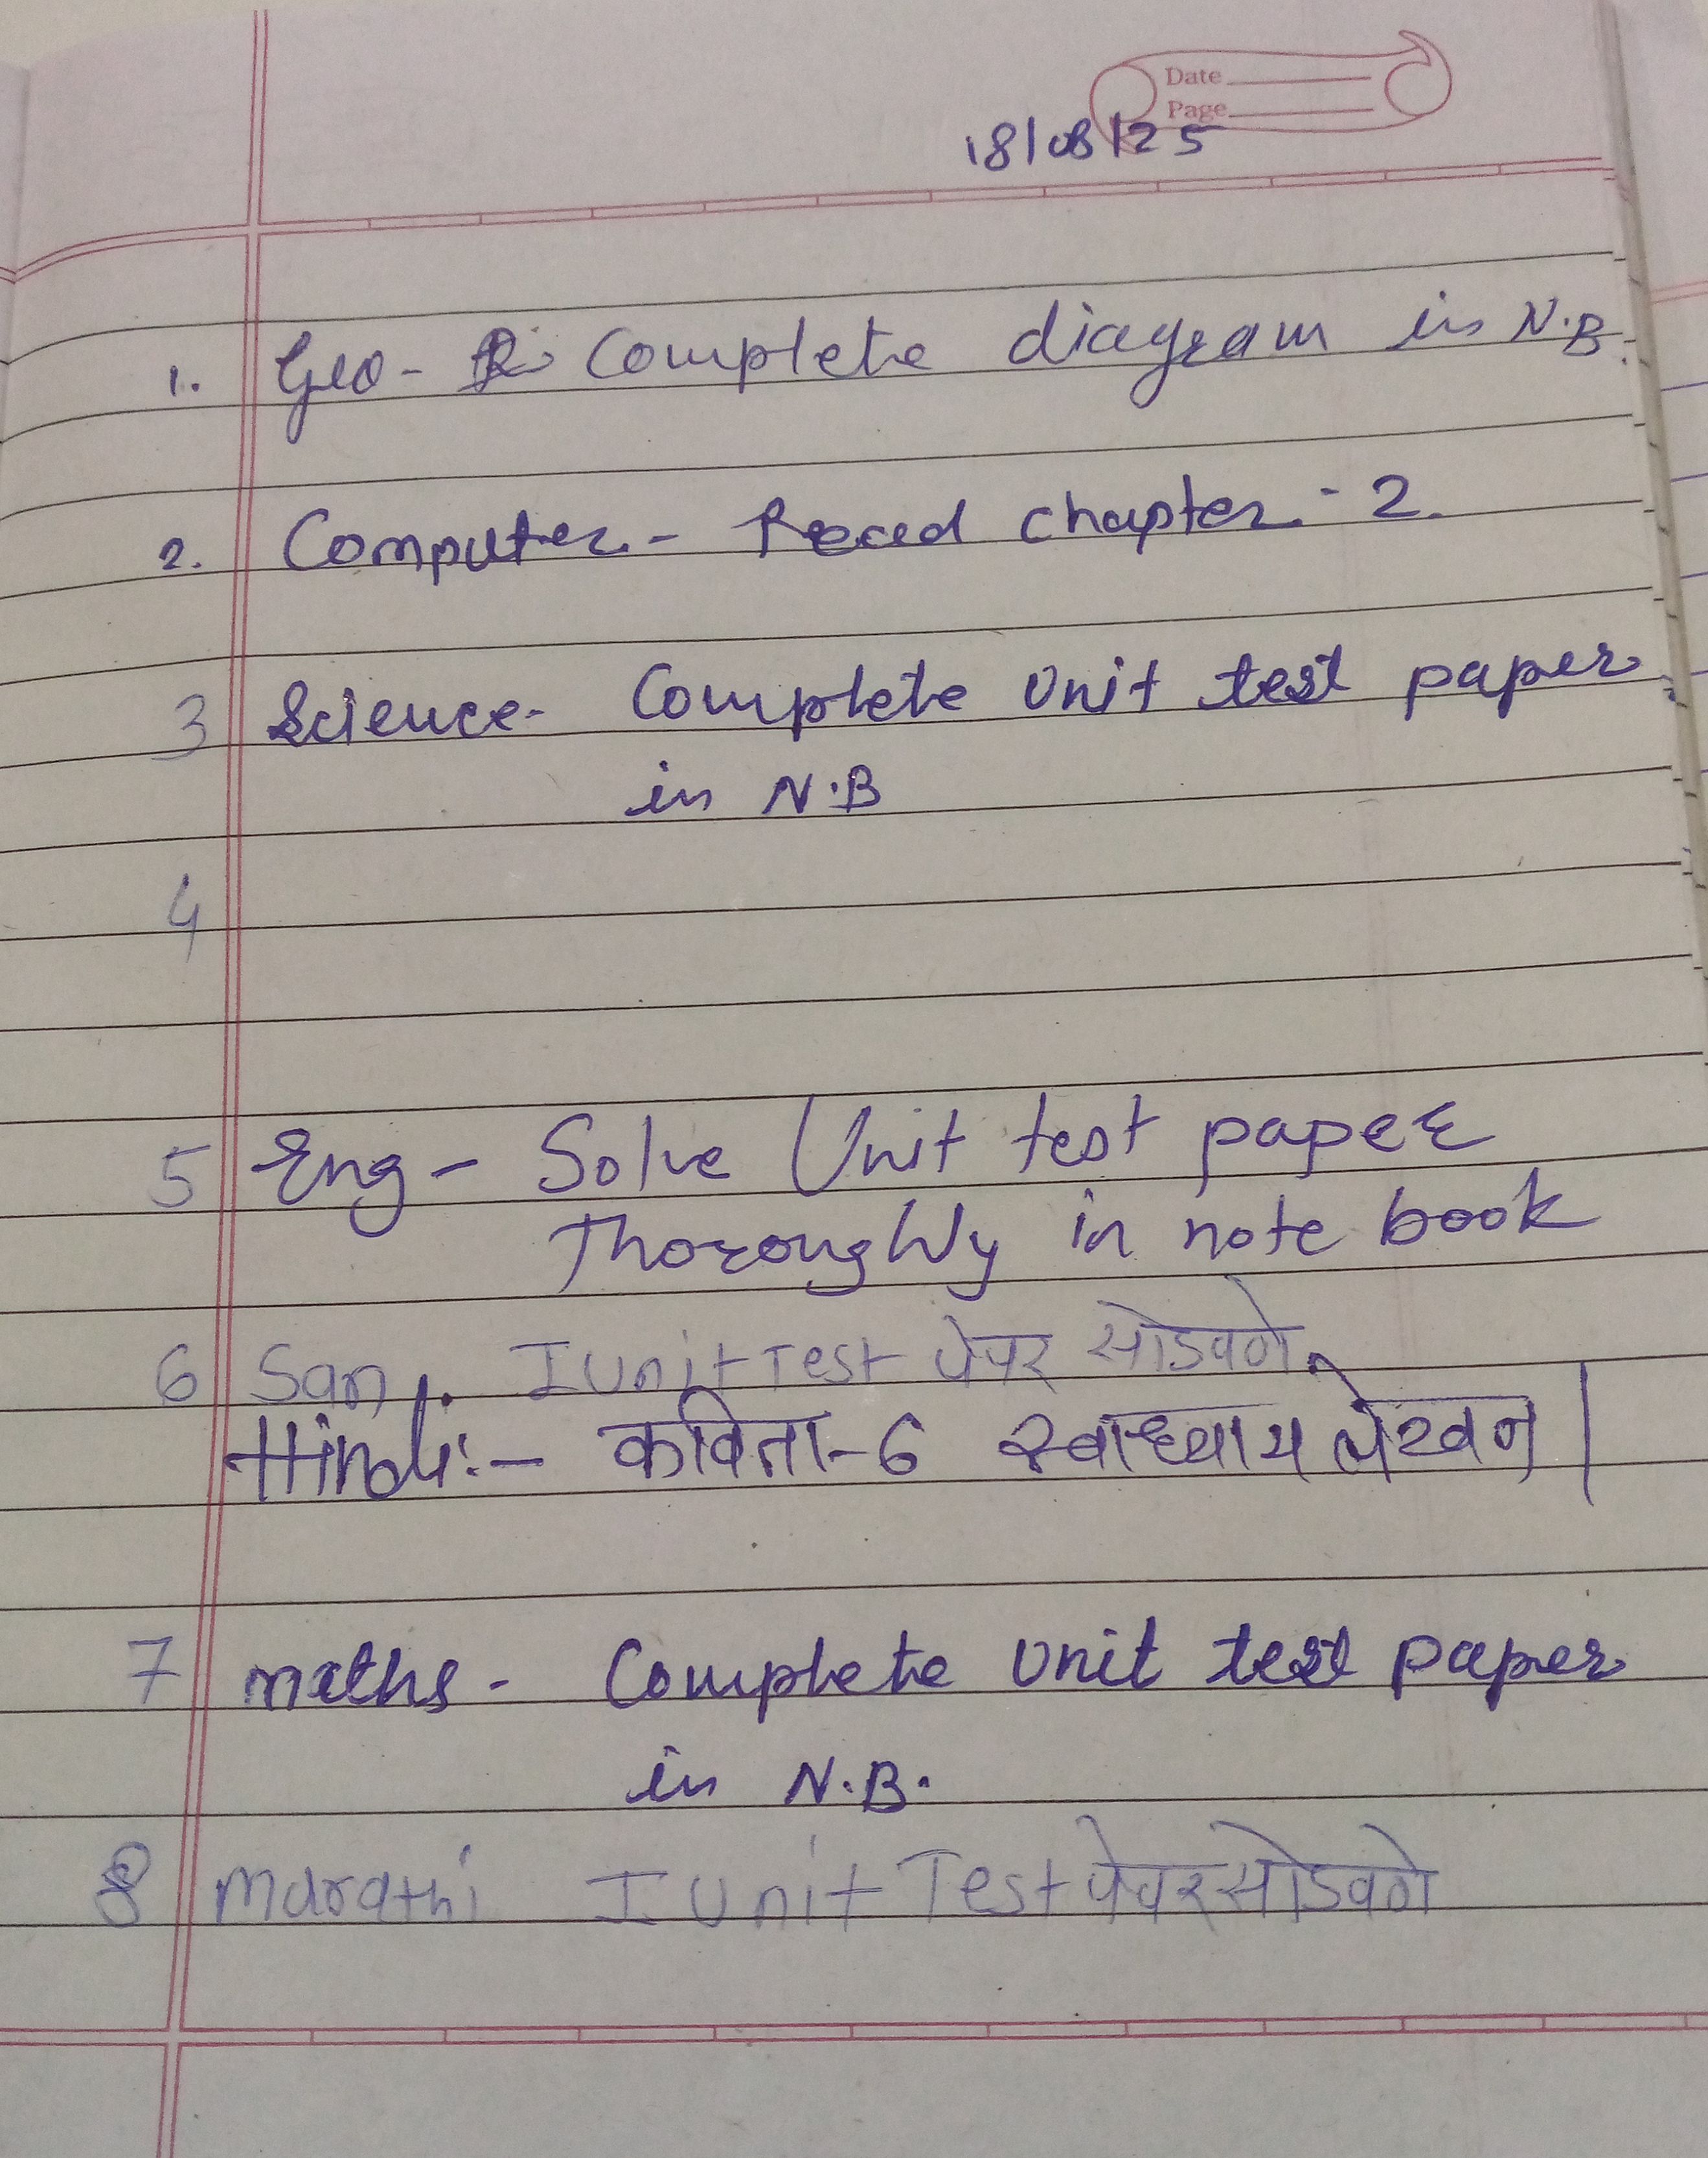 Date
Page
18/08/25
1. Geo - Complete diagram in N.B.
2. Computer - Read chapter - 2.
3 Science - Complete Unit test paper
in N.B
4
5 Eng - Solve Unit test paper
Thoroughly in note book
6 San. I Unit Test पेपर सोडवणे.
Hindi :- कविता - 6 स्वाध्याय लेखन |
7 maths - Complete Unit test paper
in N.B.
8 Marathi I Unit Test पेपर सोडवणे